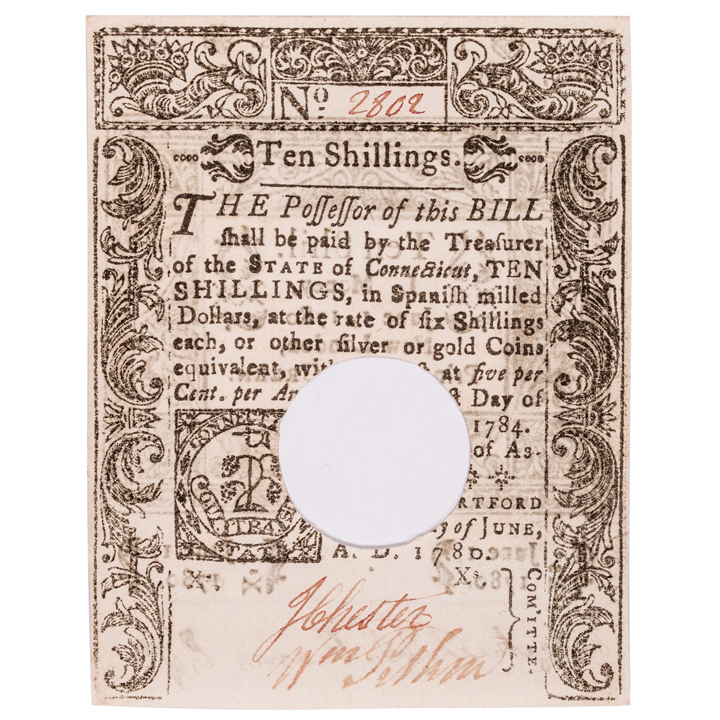 Nº 2802
Ten Shillings.
THE Poſſeſſor of this BILL
ſhall be paid by the Treaſurer
of the STATE of Connecticut, TEN
SHILLINGS, in Spaniſh milled
Dollars, at the rate of ſix Shillings
each, or other ſilver or gold Coins
equivalent, at five per
Cent. per Day of
1784.
of As-
of JUNE,
A. D. 1780.
X. X.
COMITTE.
JChester
Wm